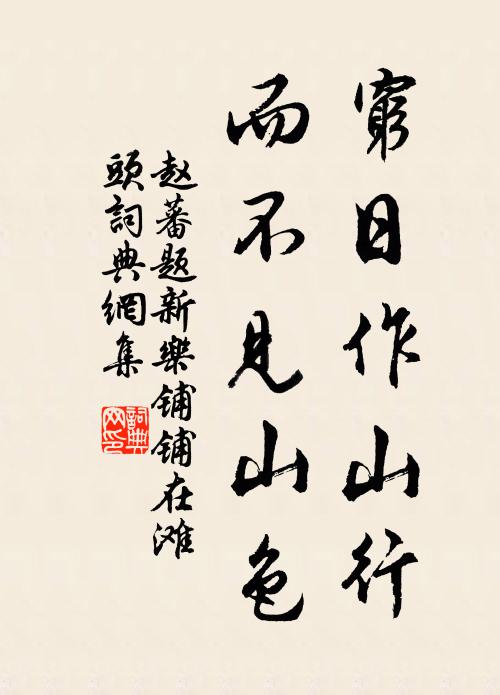 窮日作山行
而不見山色
赵蕃题新樂铺铺在滩
頭詞典網集
詞典網印